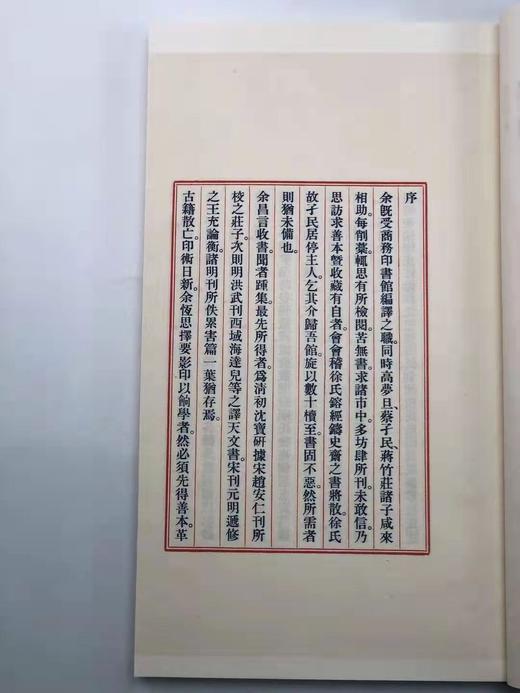 序
余旣受商務印書館編譯之職。同時高夢旦、蔡孑民、蔣竹莊諸子咸來
相助。每削藁。輒思有所檢閱。苦無書。求諸市中。多坊肆所刊。未敢信。乃
思訪求善本曁收藏有自者。會會稽徐氏鎔經鑄史齋之書將散。徐氏
故孑民居停主人。乞其介歸吾館。旋以數十櫝至。書固不惡。然所需者
則猶未備也。
余昌言收書。聞者踵集。最先所得者。爲淸初沈寶硏據宋趙安仁刊所
校之莊子。次則明洪武刊西域海達兒等之譯天文書。宋刊元明遞修
之王充論衡。諸明刊所佚累害篇一葉猶存焉。
古籍散亡。印術日新。余恆思擇要影印以餉學者。然必須先得善本。革